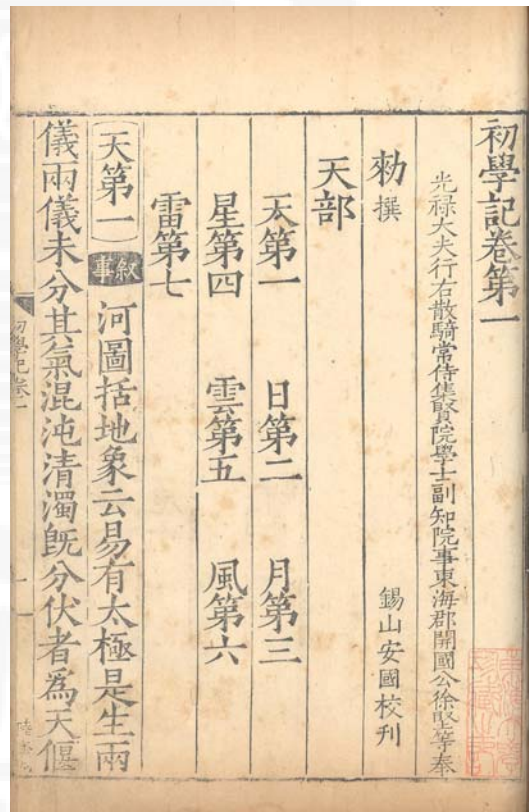 初學記卷第一
光禄大夫行右散騎常侍集賢院學士副知院事東海郡開國公徐堅等奉
勑撰 錫山安國校刊
天部
天第一 日第二 月第三
星第四 雲第五 風第六
雷第七
天第一 叙事 河圖括地象云易有太極是生兩
儀兩儀未分其氣混沌清濁既分伏者為天偃
初學記卷一